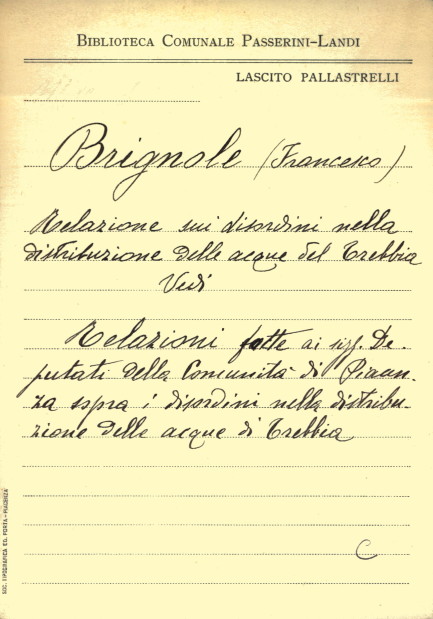 BIBLIOTECA COMUNALE PASSERINI-LANDI
LASCITO PALLASTRELLI
Brignole (Francesco)
Relazione sui disordini nella
distribuzione delle acque del Trebbia
Vedi
Relazioni fatte ai sigg. De-
putati della Comunità di Piacen-
za sopra i disordini nella distribu-
zione delle acque di Trebbia
C
SOC. TIPOGRAFICA ED. PORTA - PIACENZA